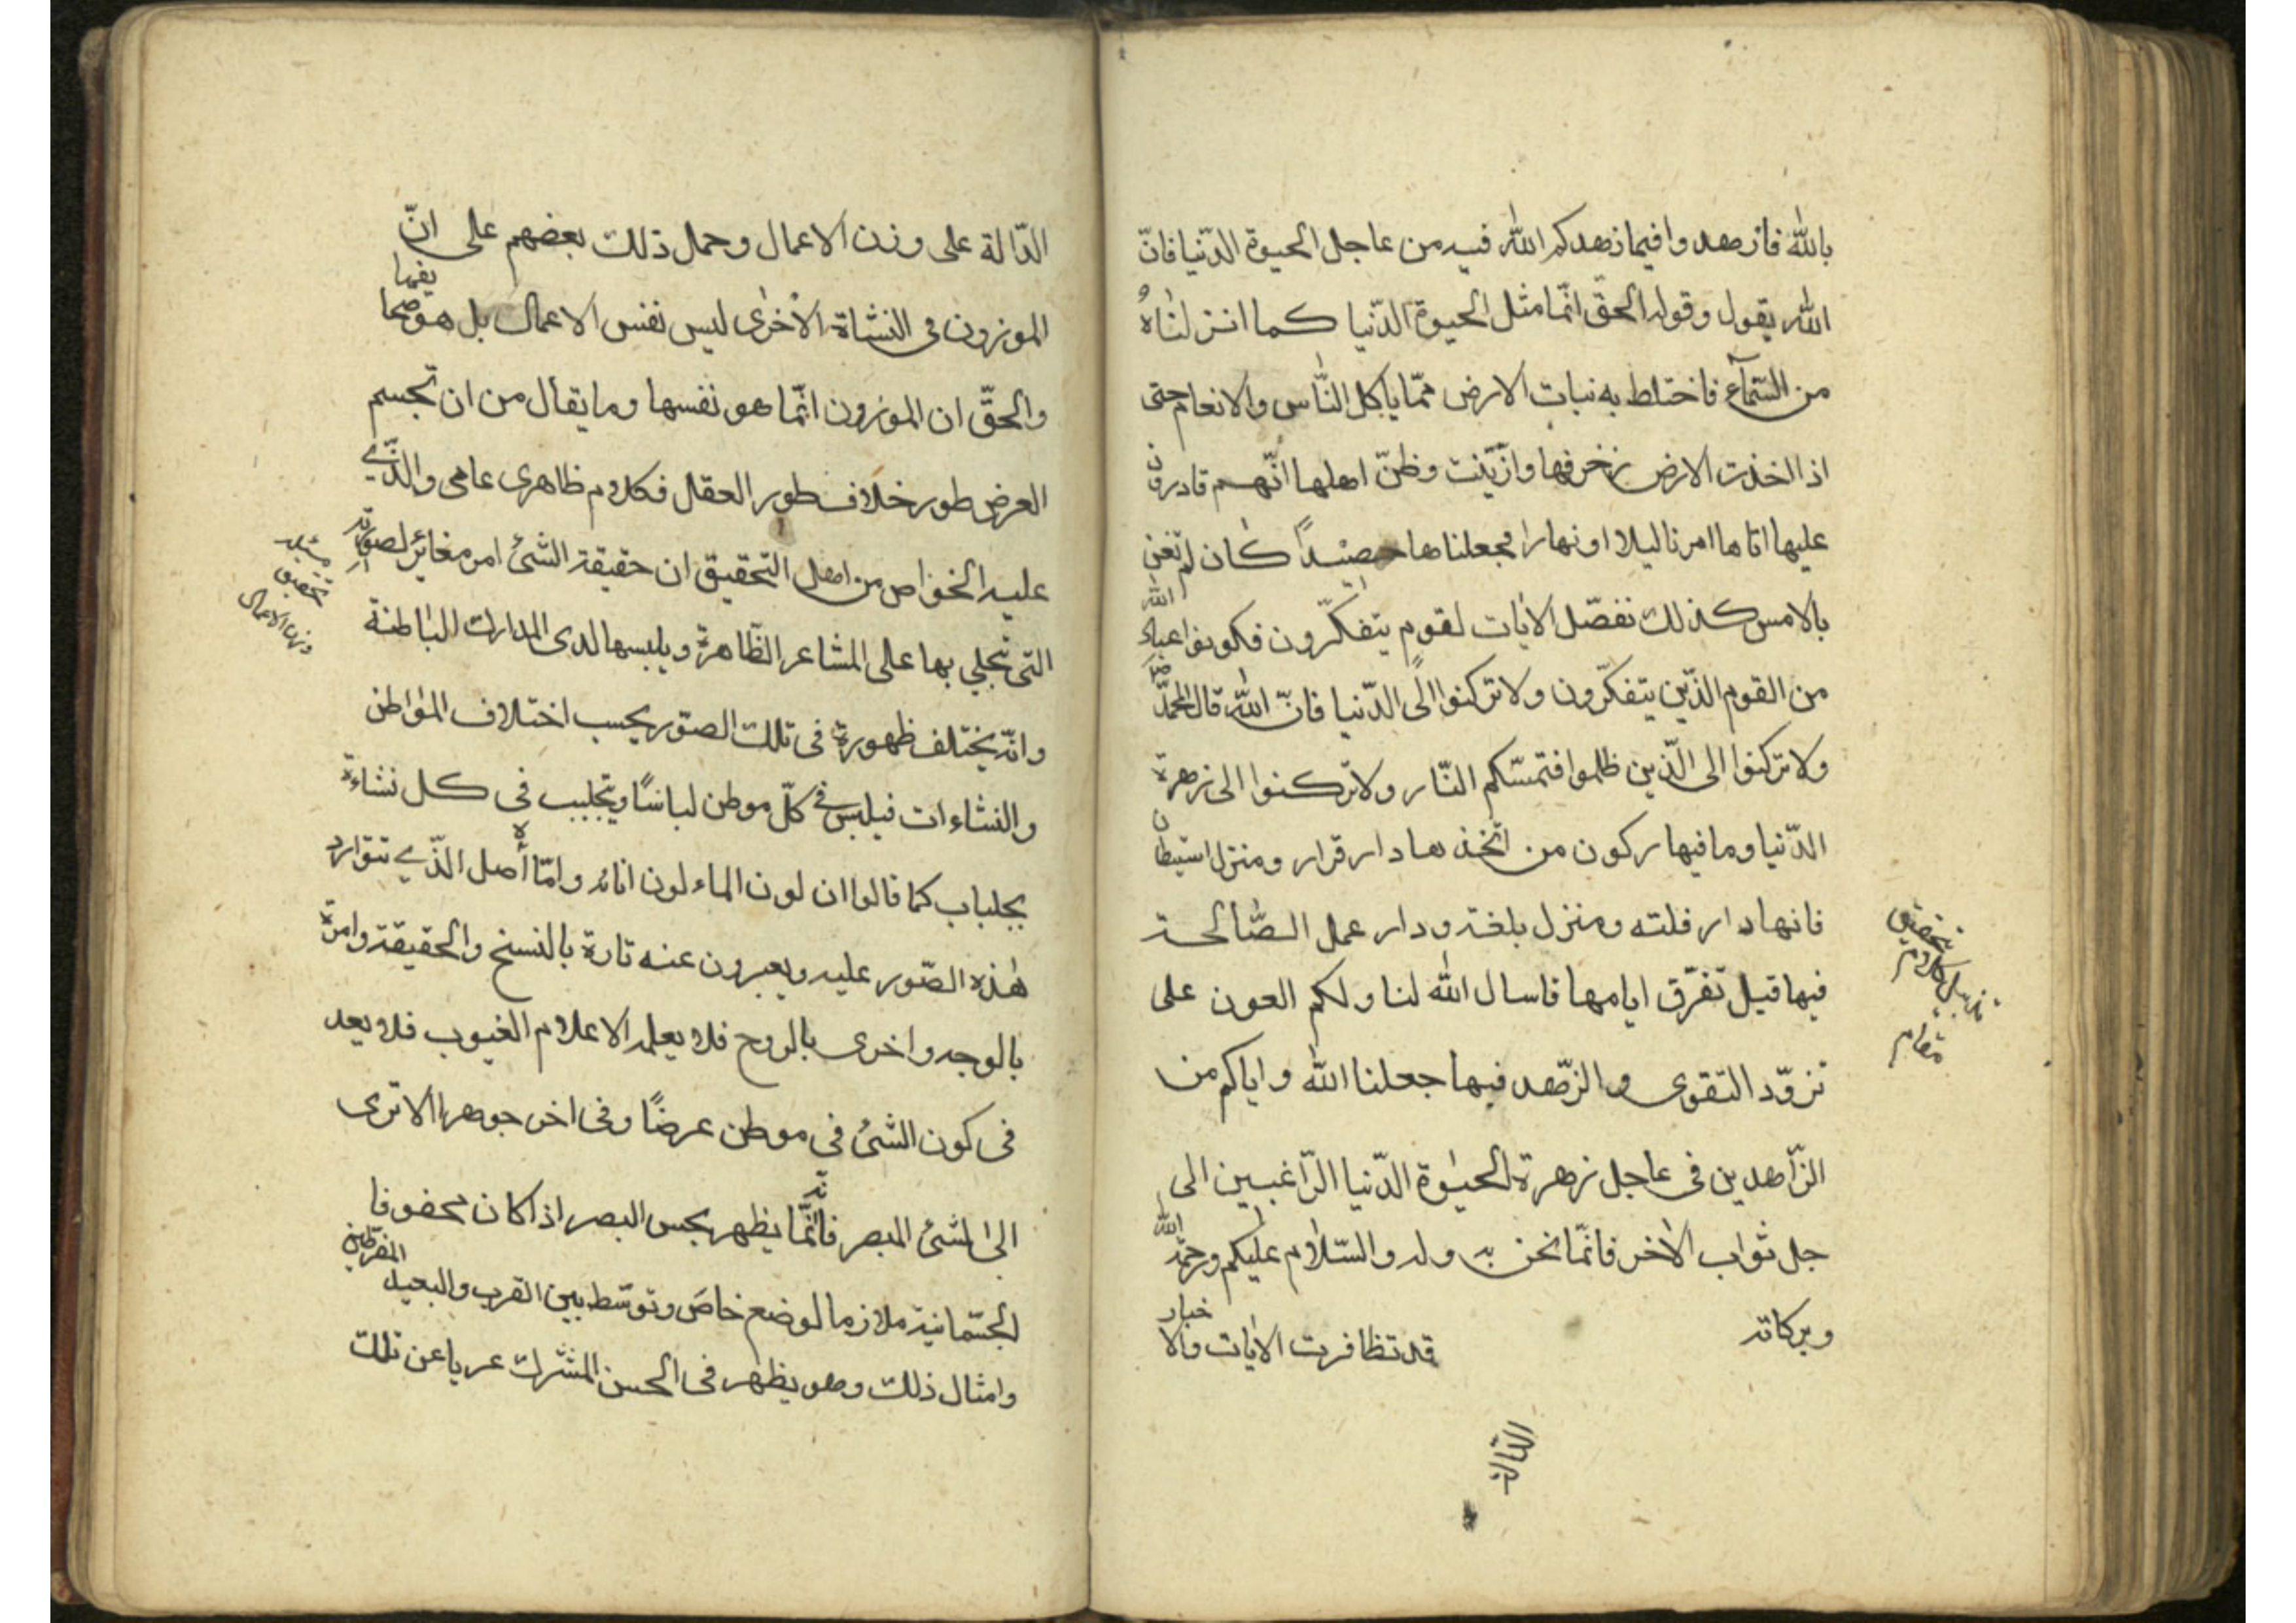 بالله فازهدوا فيما زهدكم الله فيه من عاجل الحيوة الدّنيا فانّ
الله يقول وقوله الحقّ انّما مثل الحيوة الدّنيا كما انزلناهُ
من السّمآء فاختلط به نبات الارض ممّا ياكل النّاس والانعام حتى
اذا اخذت الارض زخرفها وازّيّنت وظنّ اهلها انّهم قادرون
عليها اتاها امرنا ليلا او نهارا فجعلناها حصيداً كان لم تغن
بالامس كذلك نفصّل الايات لقوم يتفكّرون فكونوا عباد الله
من القوم الذّين يتفكّرون ولا تركنوا الى الدّنيا فانّ الله قال لمحمّد ص
ولا تركنوا الى الّذين ظلموا فتمسّكم النّار ولا تركنوا الى زهرة
الدّنيا وما فيها ركون من اتّخذها دار قرار ومنزل استيطان
فانها دار قلته ومنزل بلغة ودار عمل الصّالحة
فيها قيل تفرّق ايامها فاسال الله لنا ولكم العون على
تزوّد التقوى والزّهد فيها جعلنا الله واياكم من
الزّاهدين في عاجل زهرة الحيوة الدّنيا الرّاغبين الى
جل ثواب الاخر فانّما نحن به وله والسّلام عليكم ورحمة الله
وبركاته قد تظافرت الايات والاخبار
الدّالة
تحقيق
مقام
الدّالة على وزن الاعمال وحمل ذلك بعضهم على انّ
الموزون فى النشاة الاخرى ليس نفس الاعمال بل هو صحايفها
والحقّ ان الموزون انّما هو نفسها وما يقال من ان تجسم
العرض طور خلاف طور العقل فكلام ظاهرى عامى والّذي
عليه الخواص من اهل التحقيق ان حقيقة الشئ امر مغائر لصورته
التى تجلي بها على المشاعر الظّاهرة ويلبسها لدى المدارك الباطنة
وانّه يختلف ظهوره فى تلك الصوّر بحسب اختلاف المواطن
والنشاءات فيلبس في كلّ موطن لباسًا ويتجلبب فى كل نشاءة
بجلباب كما قالوا ان لون الماء لون انائه وامّا الاصل الّذي تتوارد
هذه الصّور عليه ويعبرون عنه تارة بالنسخ والحقيقة وامرة
بالوجه واخرى بالروح فلا يعلمه الا علام الغيوب فلا يعد
فى كون الشئ فى موطن عرضًا وفى اخر جوهرا الا ترى
الى الشئ المبصر فانّه انّما يظهر بحس البصر اذا كان محفوفا
الجسّمانية ملازما لوضع خاص وتوسّط بين القرب والبعيد المفرطين
وامثال ذلك وهو يظهر فى الحسن المشترك عريا عن تلك
مسئله
تحقيق
وزن الاعمال